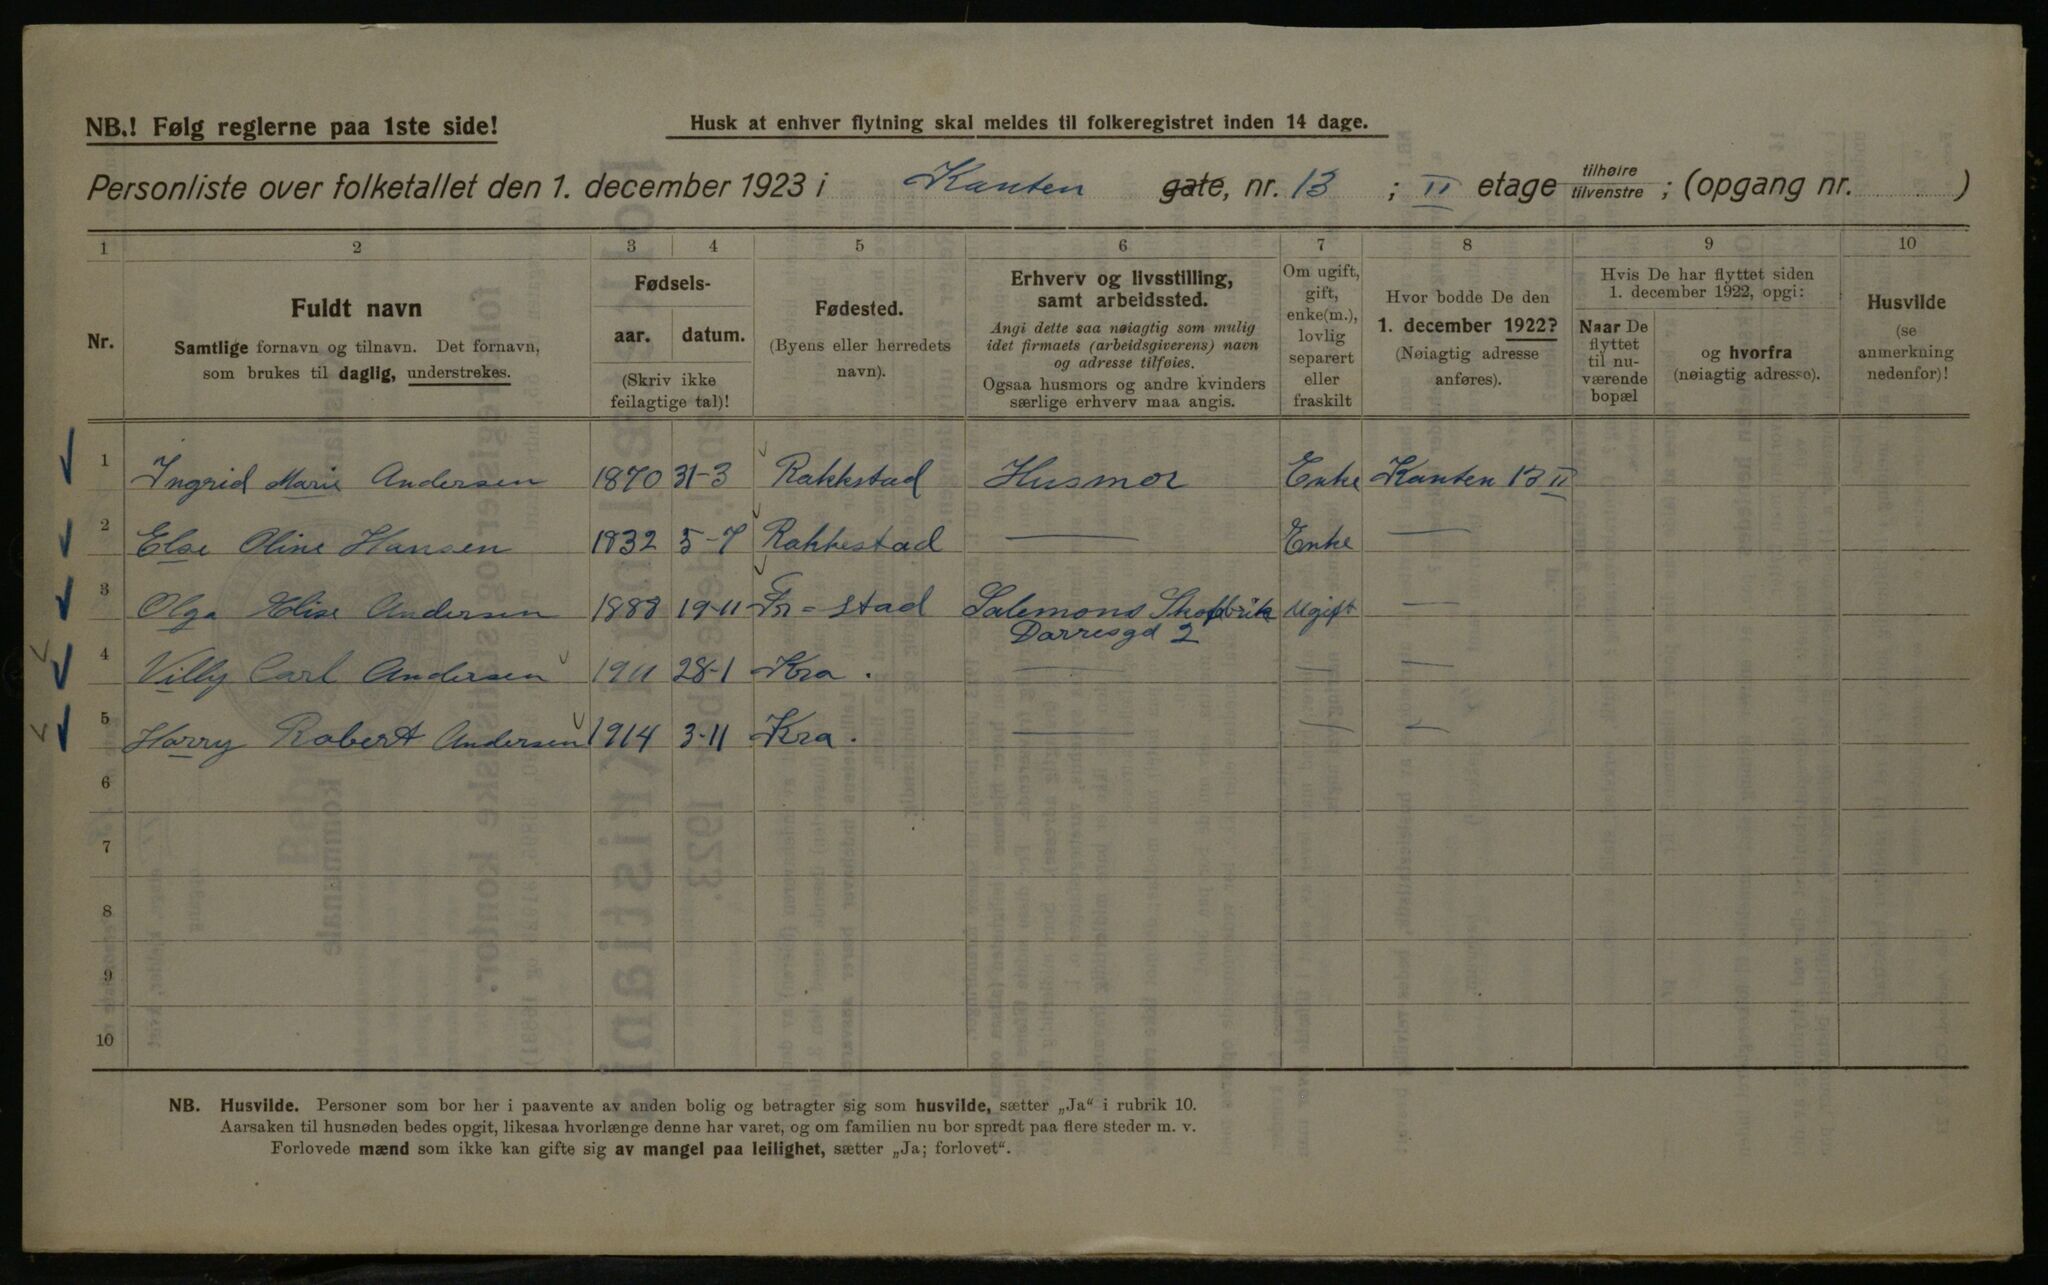 NB.! Følg reglerne paa 1ste side!
Husk at enhver flytning skal meldes til folkeregistret inden 14 dage.
Personliste over folketallet den 1. december 1923 i Kanten gate, nr. 13 ; II etage tilhøire tilvenstre ; (opgang nr. )
1 2 3 4 5 6 7 8 9 10
Nr.
Fuldt navn
Samtlige fornavn og tilnavn. Det fornavn,
som brukes til daglig, understrekes.
Fødsels-
aar. datum.
(Skriv ikke
feilagtige tal)!
Fødested.
(Byens eller herredets
navn).
Erhverv og livsstilling,
samt arbeidssted.
Angi dette saa nøiagtig som mulig
idet firmaets (arbeidsgiverens) navn
og adresse tilføies.
Ogsaa husmors og andre kvinders
særlige erhverv maa angis.
Om ugift,
gift,
enke(m.),
lovlig
separert
eller
fraskilt
Hvor bodde De den
1. december 1922?
(Nøiagtig adresse
anføres).
Hvis De har flyttet siden
1. december 1922, opgi:
Naar De
flyttet
til nu-
værende
bopæl
og hvorfra
(nøiagtig adresse).
Husvilde
(se
anmerkning
nedenfor)!
1 Ingrid Marie Andersen 1870 31-3 Rakkstad Husmor Enke Kanten 13 II
2 Else Oline Hansen 1832 5-7 Rakkestad — Enke —
3 Olga Elise Andersen 1888 19-11 Fr-stad Salemons Skofabrik Ugift —
Darresgd 2
4 Villy Carl Andersen 1911 28-1 Kra. — — —
5 Harry Robert Andersen 1914 3-11 Kra. — — —
6
7
8
9
10
NB. Husvilde. Personer som bor her i paavente av anden bolig og betragter sig som husvilde, sætter „Ja“ i rubrik 10.
Aarsaken til husnøden bedes opgit, likesaa hvorlænge denne har varet, og om familien nu bor spredt paa flere steder m. v.
Forlovede mænd som ikke kan gifte sig av mangel paa leilighet, sætter „Ja; forlovet“.